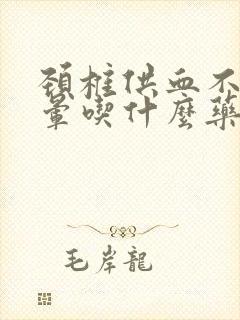 頸椎供血不
暈喫什麼藥
毛岸龍